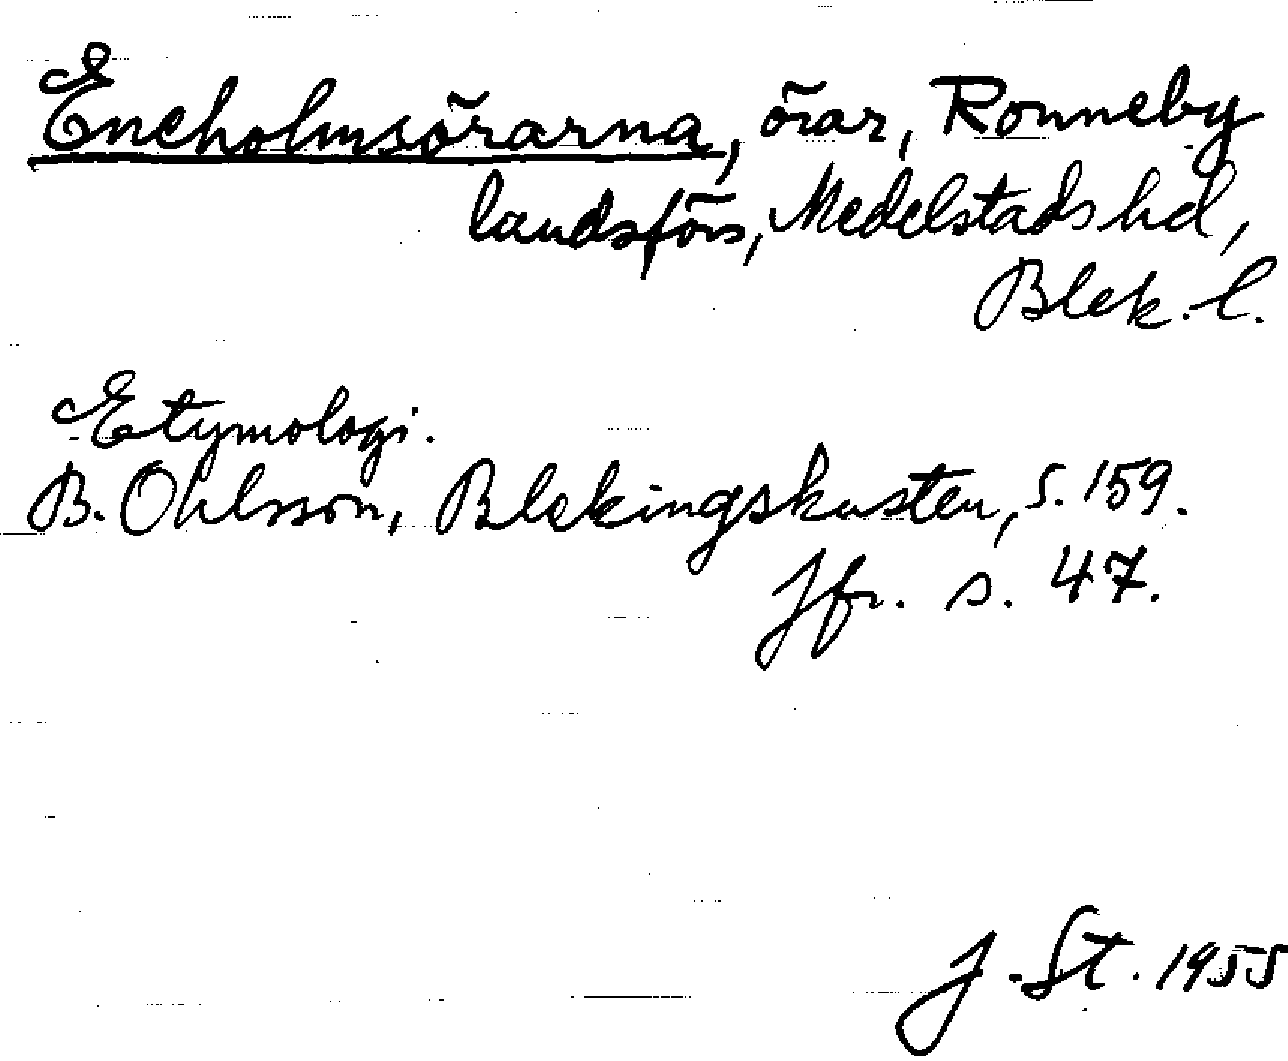 Eneholmsörarna, örar, Ronneby
landsförs, Medelstads hd,
Blek. l.
Etymologi.
B. Ohlsson, Blekingskusten, s. 159.
Jfr. s. 47.
J. St. 1955